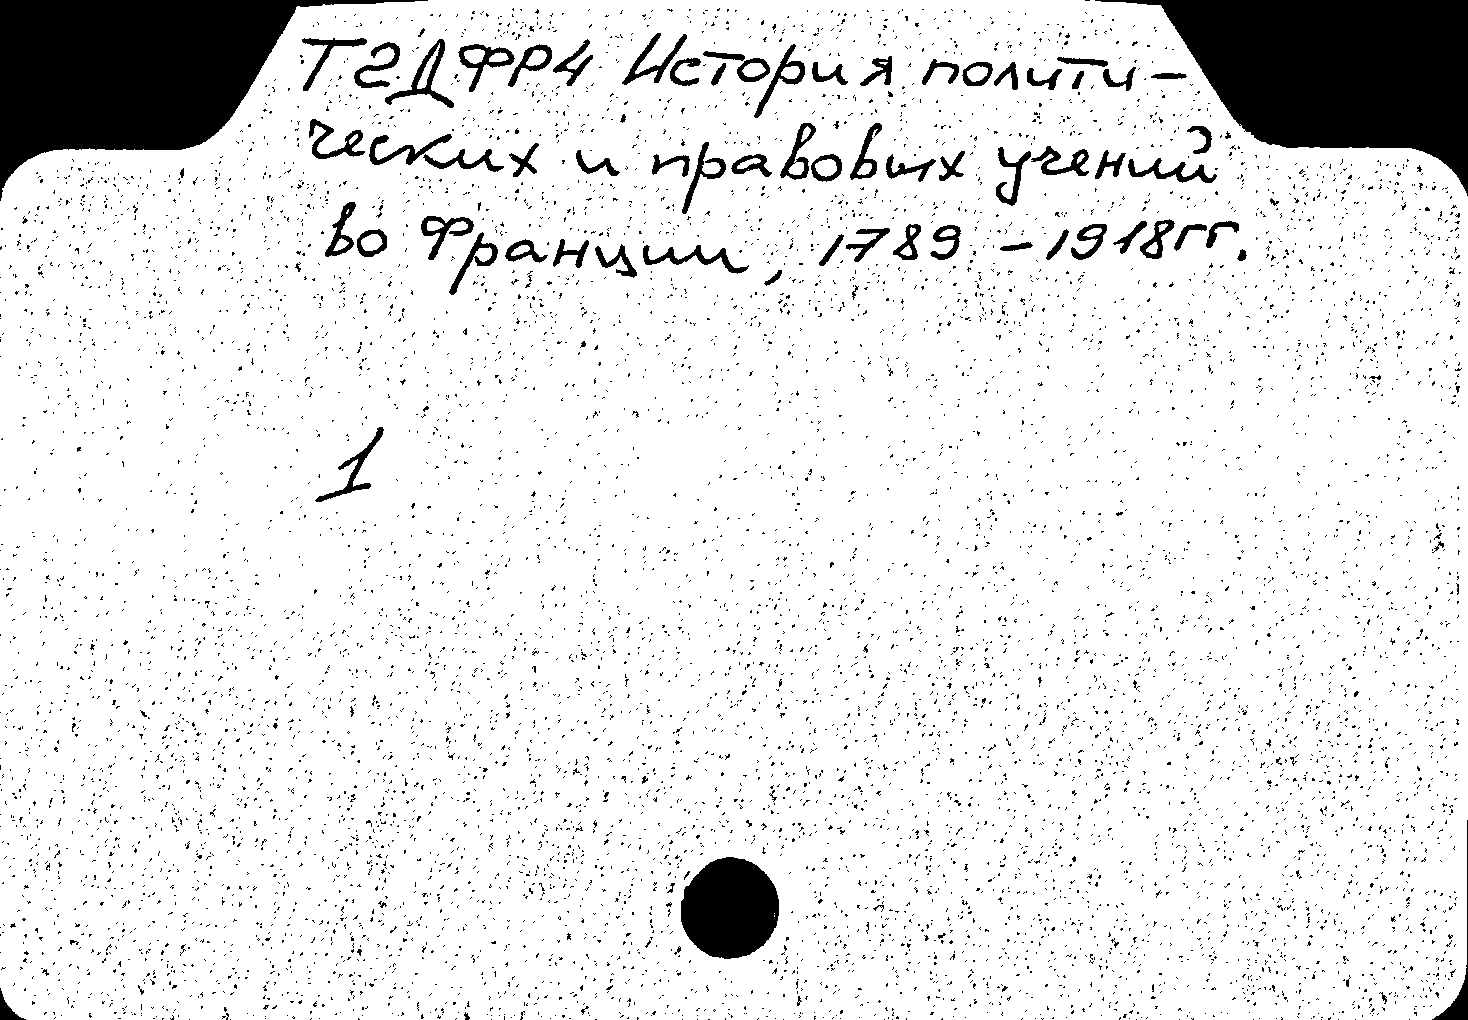 Т2ДФР4 История полити-
ческих и правовых учений
во Франции, 1789 - 1918 гг.
1